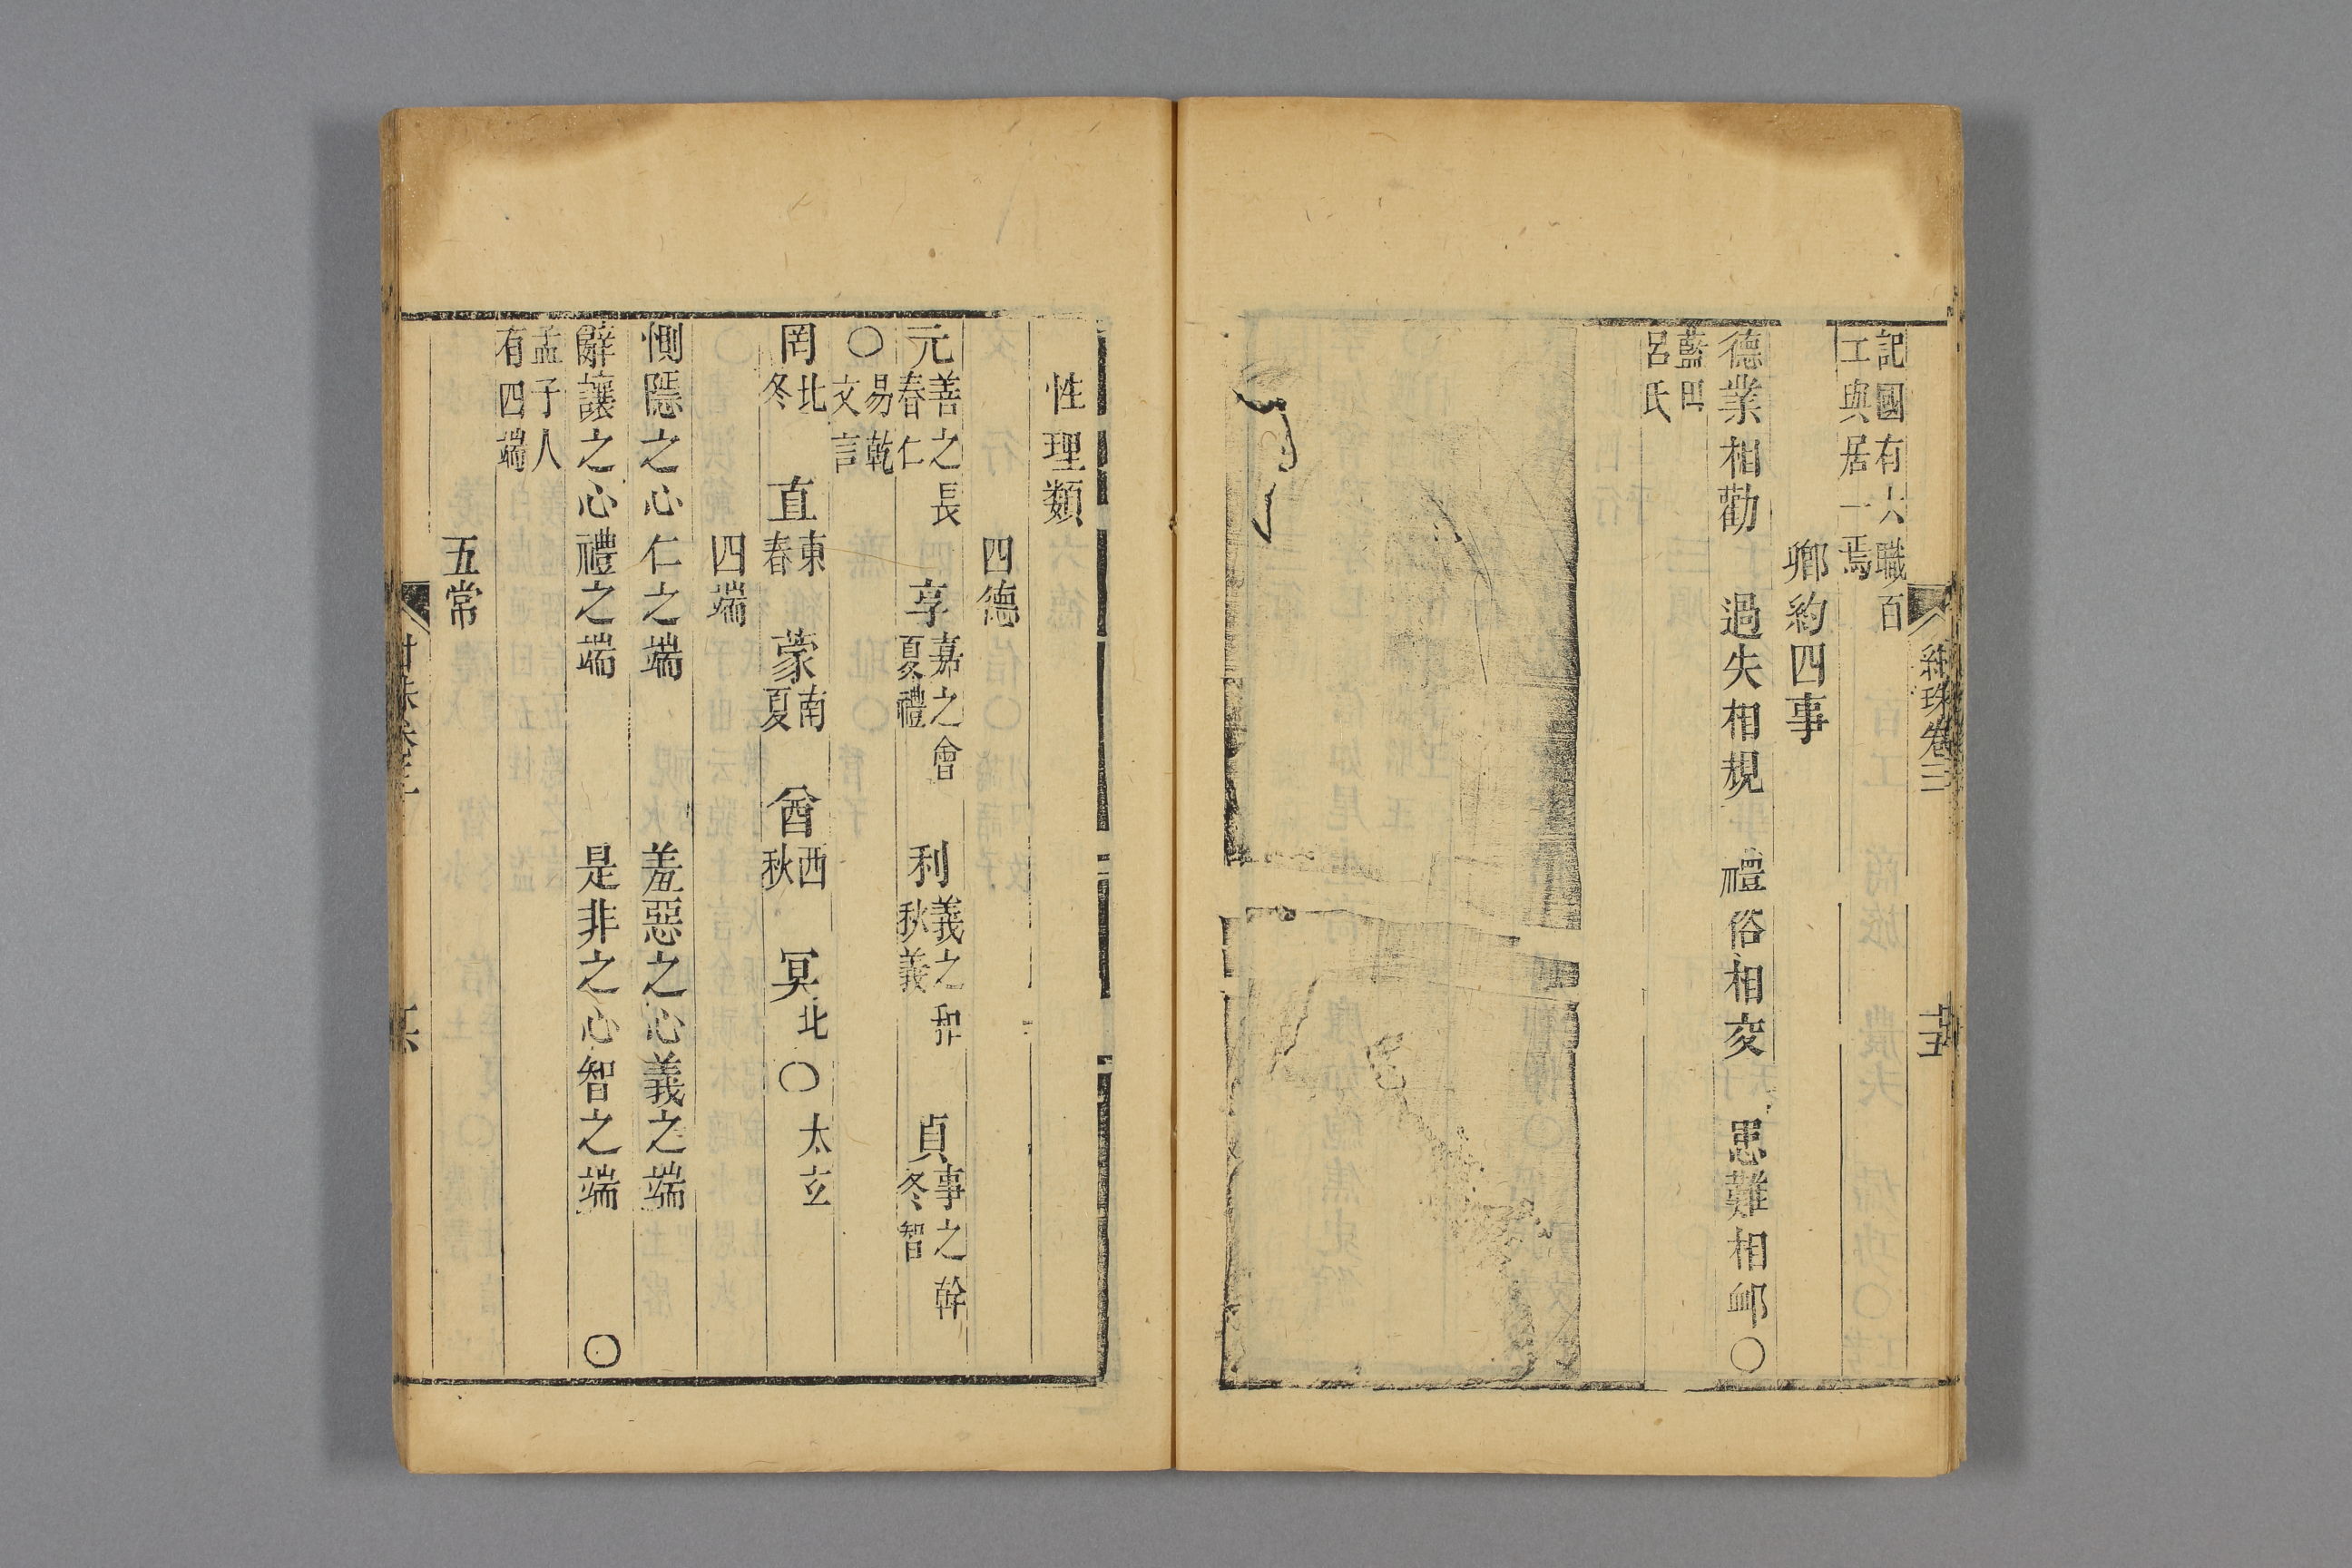 紺珠卷三
十五
記國有六職百
工與居一焉
鄉約四事
德業相勸　過失相規　禮俗相交　患難相卹〇
藍田
呂氏
性理類
四德
元善之長春仁　亨嘉之會夏禮　利義之和秋義　貞事之幹冬智
〇易乾文言
罔北冬　直東春　蒙南夏　酋西秋　冥北〇太玄
四端
惻隱之心仁之端　羞惡之心義之端
辭讓之心禮之端　是非之心智之端　〇
孟子人
有四端
五常